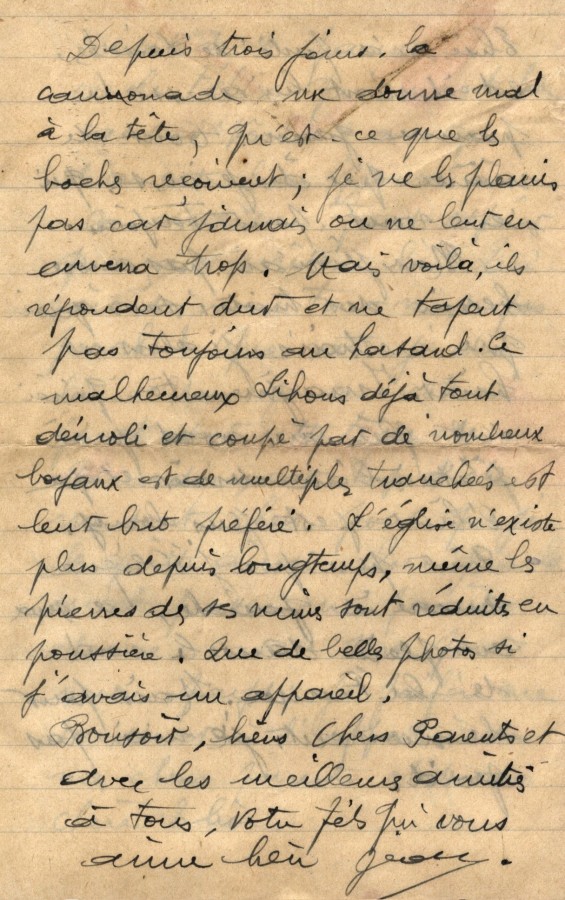 Depuis trois jours, la
canonnade me donne mal
à la tête, qu'est-ce que les
boches reçoivent ; je ne les plains
pas car jamais on ne leur en
enverra trop. Mais voilà, ils
répondent dur et ne tapent
pas toujours au hasard. Ce
malheureux Lihons déjà tout
démoli et coupé par de nombreux
boyaux et de multiples tranchées est
leur but préféré. L'église n'existe
plus depuis longtemps, même les
pierres de ses ruines sont réduites en
poussière. Que de belles photos si
j'avais un appareil.
Bonsoir, biens Chers Parents et
avec les meilleures amitiés
à tous, votre fils qui vous
aime bien Jean.